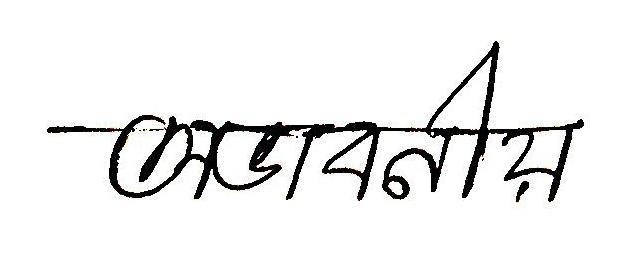 অভাবনীয়